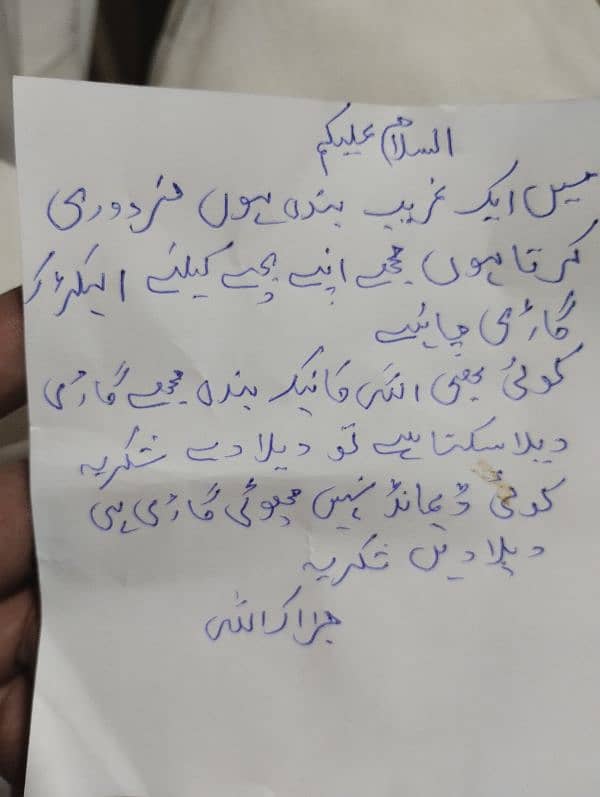 السلام علیکم
میں ایک غریب بندہ ہوں مزدوری
کرتا ہوں مجھے اپنے بچے کیلئے الیکڑک
گاڑی چاہئیے
کوئی بھی اللہ کا نیک بندہ مجھے گاڑی
دیلا سکتا ہے تو دیلا دے شکریہ
کوئی ڈیمانڈ نہیں چھوٹی گاڑی ہی
دیلا دیں شکریہ
جزاک اللہ